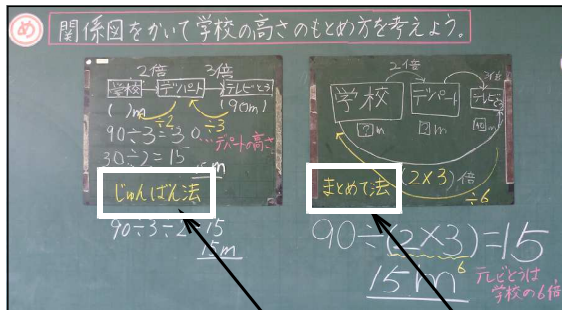 め 関係図をかいて学校の高さのもとめ方を考えよう。
2倍 3倍
学校 デパート テレビとう
( )m (90m)
÷2 ÷3
90÷3=30 …デパートの高さ
30÷2=15
15m
じゅんばん法
90÷3÷2=15
15m
2倍 3倍
学校 デパート テレビとう
?m ?m 90m
まとめて法 (2×3)倍
÷6
90÷(2×3)=15
6
15m
テレビとうは
学校の6倍